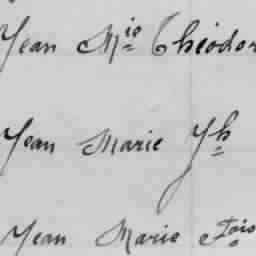 Jean Mie Théodor
Jean Marie Jh
Jean Marie Fois